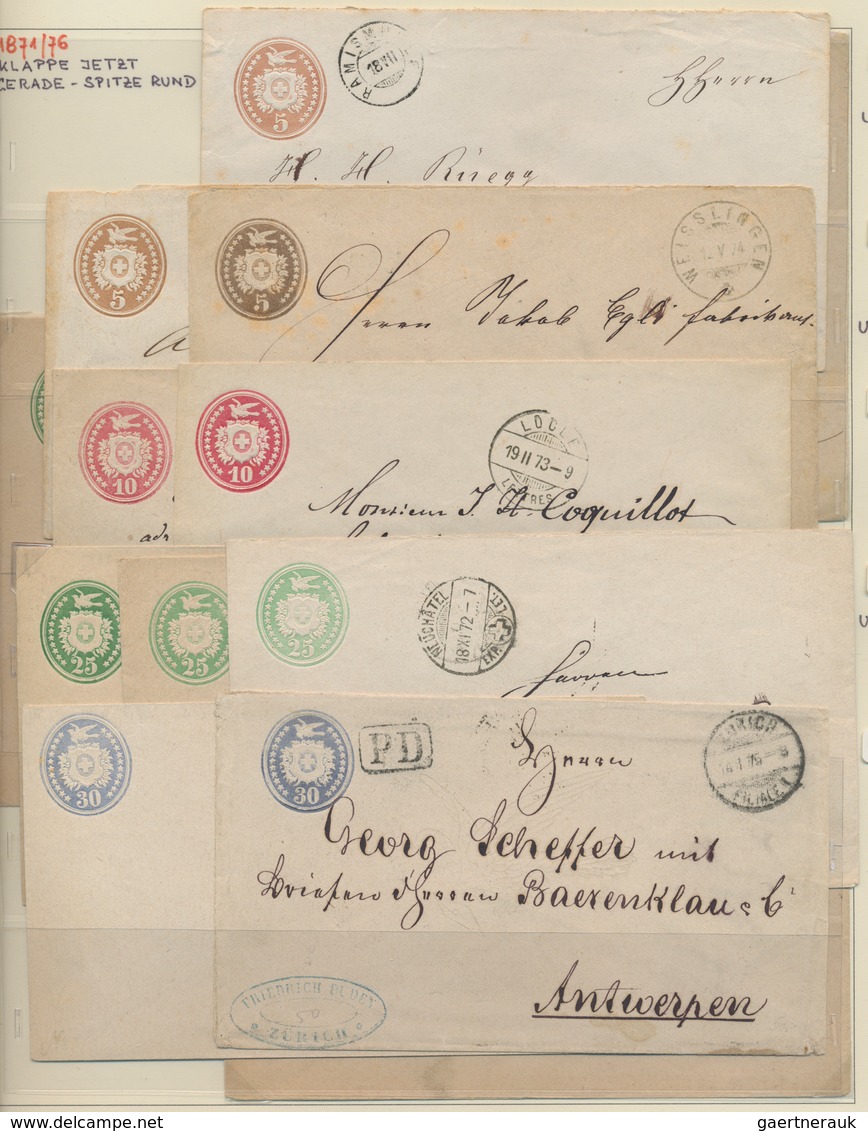 1871/76
KLAPPE JETZT
GERADE - SPITZE RUND
5
18 VII
HHerrn
H. H. Rüegg
5
5
WEISSLINGEN
V 74
Herrn Jakob Egli Fabrikant.
10
10
LOCLE
19 II 73-9
LETTRES
Monsieur J. H. Coquillot
25
25
25
NEUCHÂTEL
18 XI 72-7
LET. EXP.
Herren
30
30
PD
ZÜRICH
FILIALE 1
Herren
Georg Scheffer mit
Briefen d'Herren Baerenklau & C
Antwerpen
FRIEDRICH
50
ZÜRICH
gaertnerauk